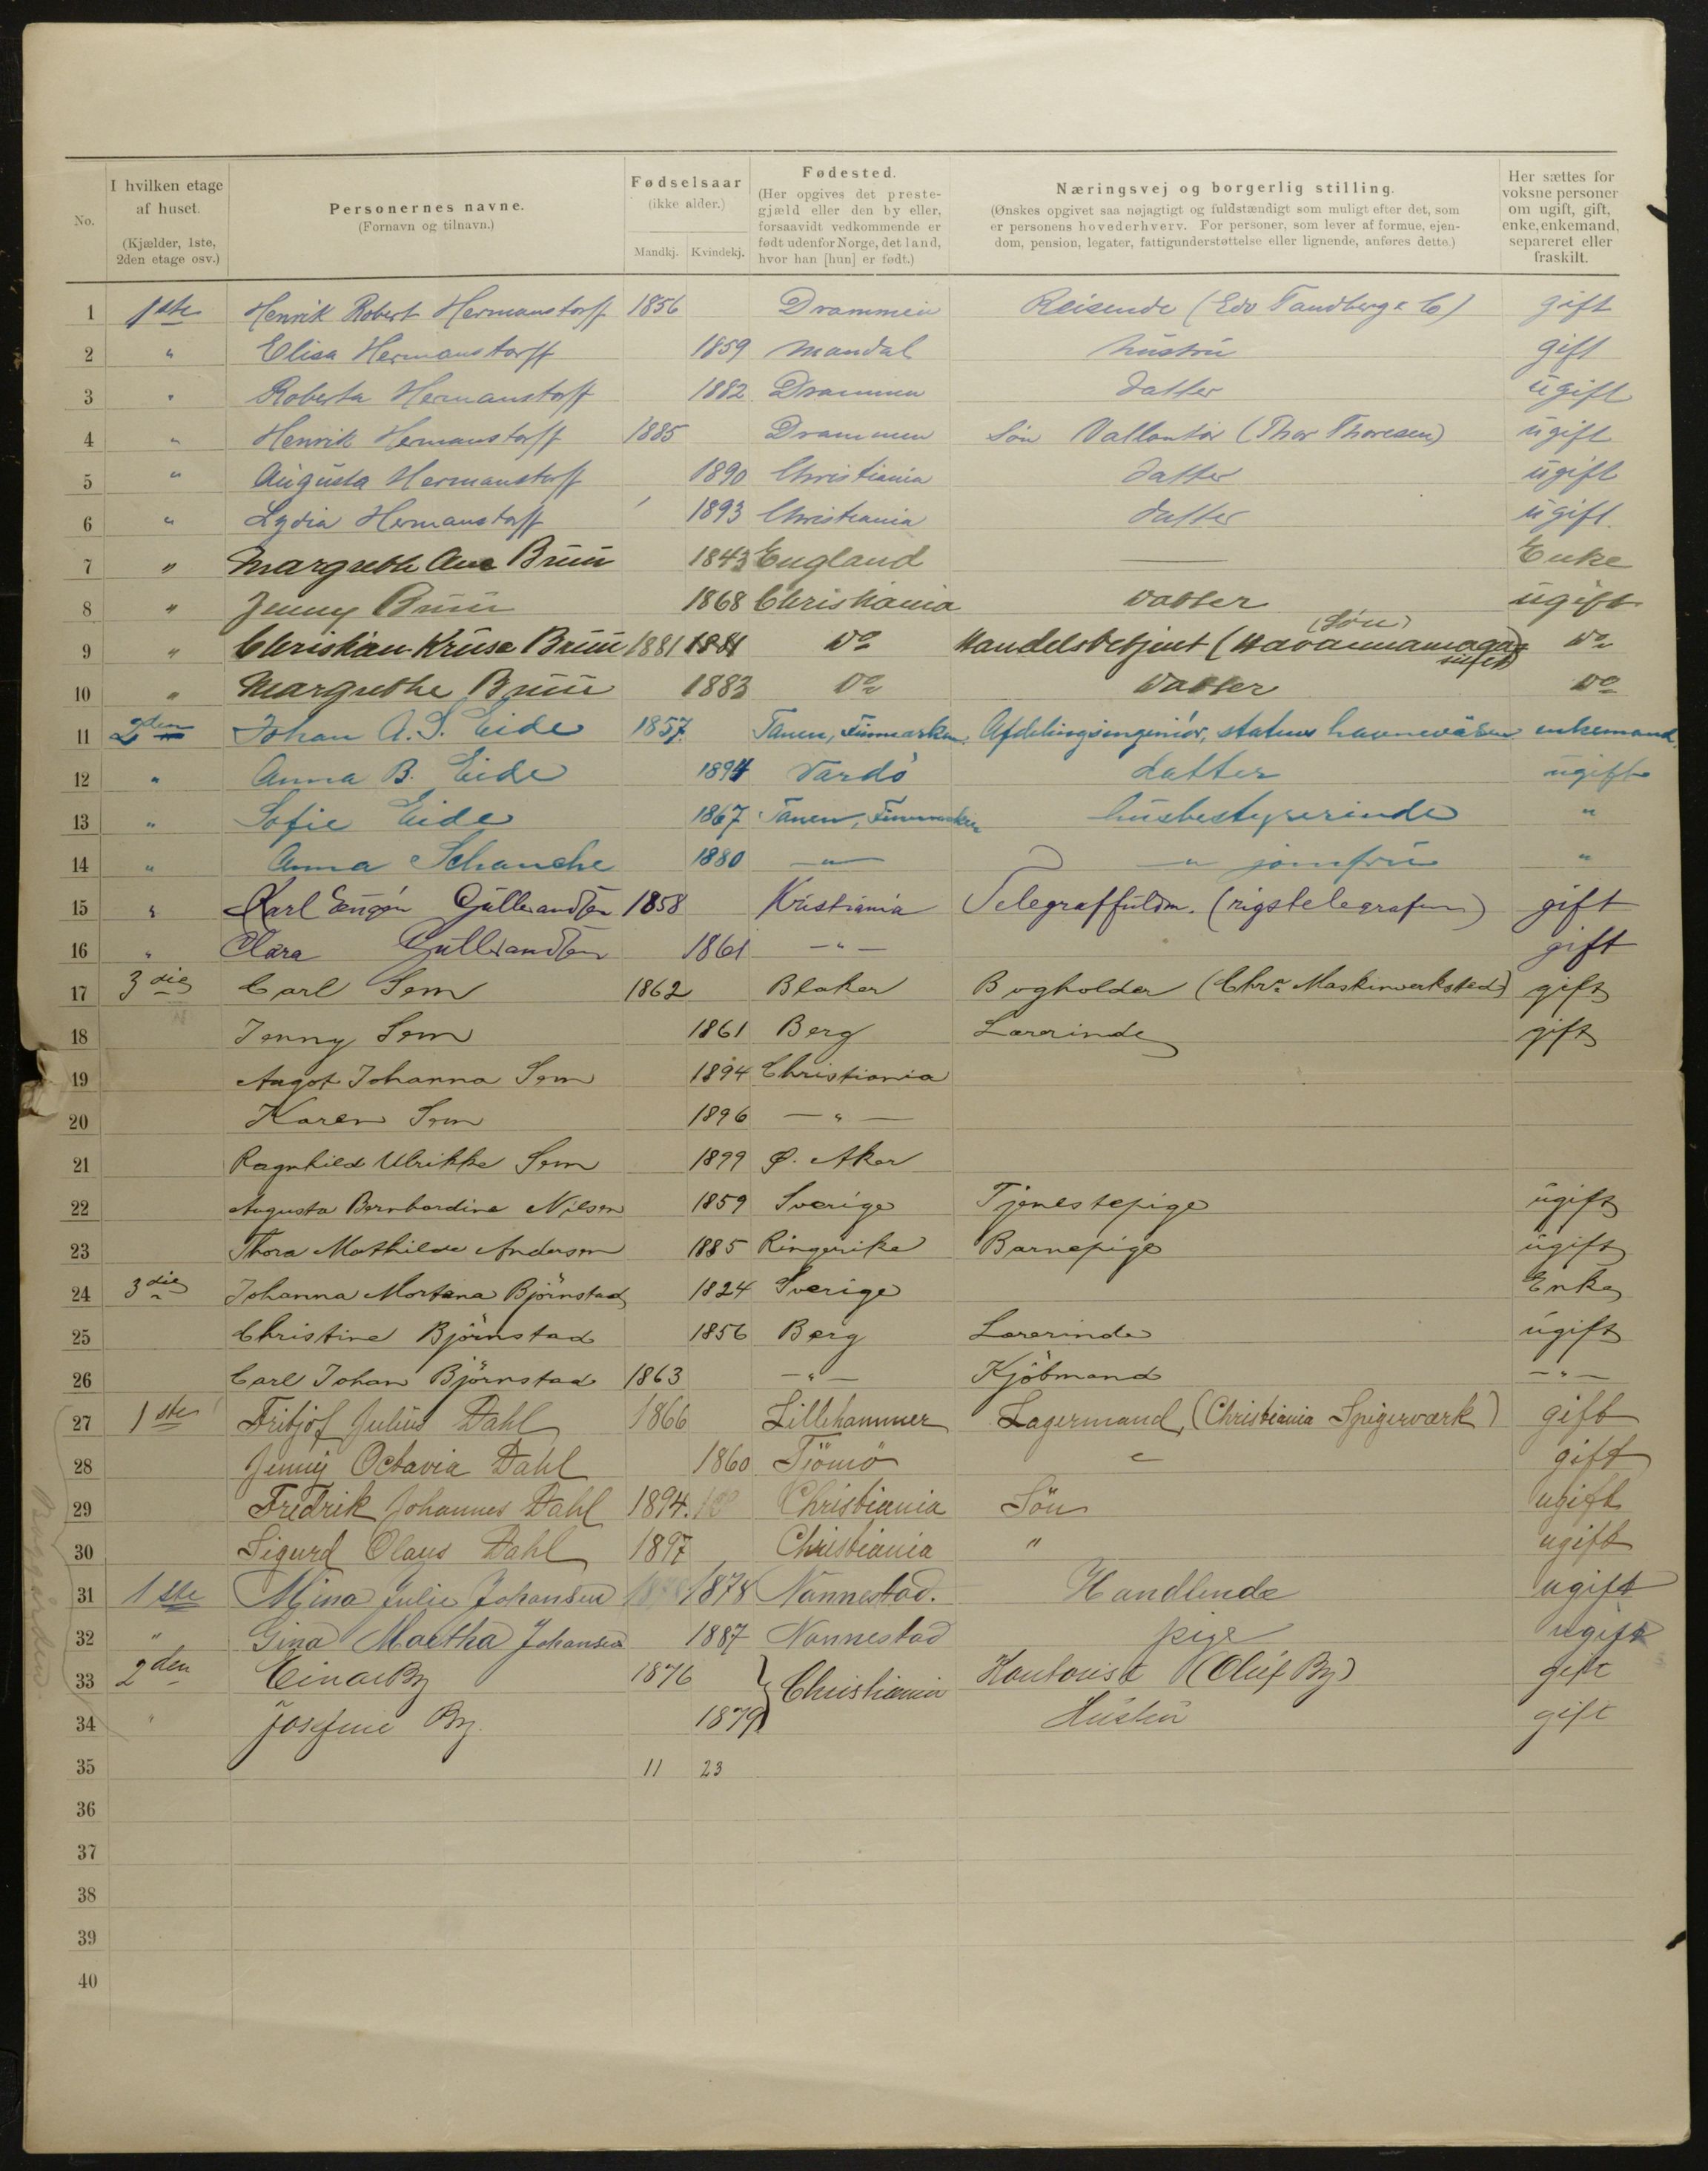 No.
I hvilken etage af huset.
(Kjælder, 1ste, 2den etage osv.)
Personernes navne.
(Fornavn og tilnavn.)
Fødselsaar
(ikke alder.)
Mandkj. Kvindekj.
Fødested.
(Her opgives det prestegjæld eller den by eller, forsaavidt vedkommende er født udenfor Norge, det land, hvor han [hun] er født.)
Næringsvej og borgerlig stilling.
(Ønskes opgivet saa nøjagtigt og fuldstændigt som muligt efter det, som er personens hovederhverv. For personer, som lever af formue, ejendom, pension, legater, fattigunderstøttelse eller lignende, anføres dette.)
Her sættes for voksne personer om ugift, gift, enke, enkemand, separeret eller fraskilt.
1 1ste Henrik Robert Hermanstorff 1856 Drammen Reisende (Edv Tandberg & Co) gift
2 " Elisa Hermanstorff 1859 Mandal hustru gift
3 " Roberta Hermanstorff 1882 Drammen datter ugift
4 " Henrik Hermanstorff 1885 Drammen Søn (Thor Thoresen) ugift
5 " Augusta Hermanstorff 1890 Christiania datter ugift
6 " Lydia Hermanstorff 1893 Christiania datter ugift
7 " Margrethe Ane Bruu 1843 England — Enke
8 " Jenny Bruu 1868 Christiania datter ugift
9 " Christian Kruse Bruu 1881 1881 Do Handelsbetjent (Søn) Do
10 " Margrethe Bruu 1883 Do datter Do
11 2den Johan A. S. Eide 1857. Tanen, Finmarken. Afdelingsingeniör, statens havneväsen enkemand.
12 " Anna B. Eide 1894 Vardö datter ugift
13 " Sofie Eide 1867 Tanen, Finmarken husbestyrerinde "
14 " Anna Schanche 1880 — " — — " jomfru "
15 " Karl Eugén Gulbrandsen 1858 Kristiania Telegraffuldm. (rigstelegrafen) gift
16 " Clara Gulbrandsen 1861 — " — gift
17 3die Carl Sem 1862 Blaker Bogholder (Chra Maskinverksted) gift
18 Jenny Sem 1861 Berg Lærerinde gift
19 Aagot Johanna Sem 1894 Christiania
20 Karen Sem 1896 — " —
21 Ragnhild Ulrikke Sem 1899 Ø. Aker
22 Augusta Bernhardine Nilsen 1859 Sverige Tjenestepige ugift
23 Thora Mathilde Andersen 1885 Ringerike Barnepige ugift
24 3die Johanna Mortena Björnstad 1824 Sverige Enke
25 Christine Björnstad 1856 Berg Lærerinde ugift
26 Carl Johan Björnstad 1863 — " — Kjöbmand — " —
27 1ste Fritjof Julius Dahl 1866 Lillehammer Lagermand, (Christiania Spigerværk) gift
28 Jenny Octavia Dahl 1860 Tjömö " gift
29 Fredrik Johannes Dahl 1894. Christiania Sön ugift
30 Sigurd Olaus Dahl 1897 Christiania " ugift
31 1ste Mina Julie Johansen 1878 1878 Nannestad. Handlende ugift
32 " Gina Martha Johansen 1887 Nannestad pige ugift
33 2den Einar By 1876 Christiania Kontorist (Oluf By) gift
34 " Josefine By. 1879 Hustru gift
35 11 23
36
37
38
39
40
Baggården.